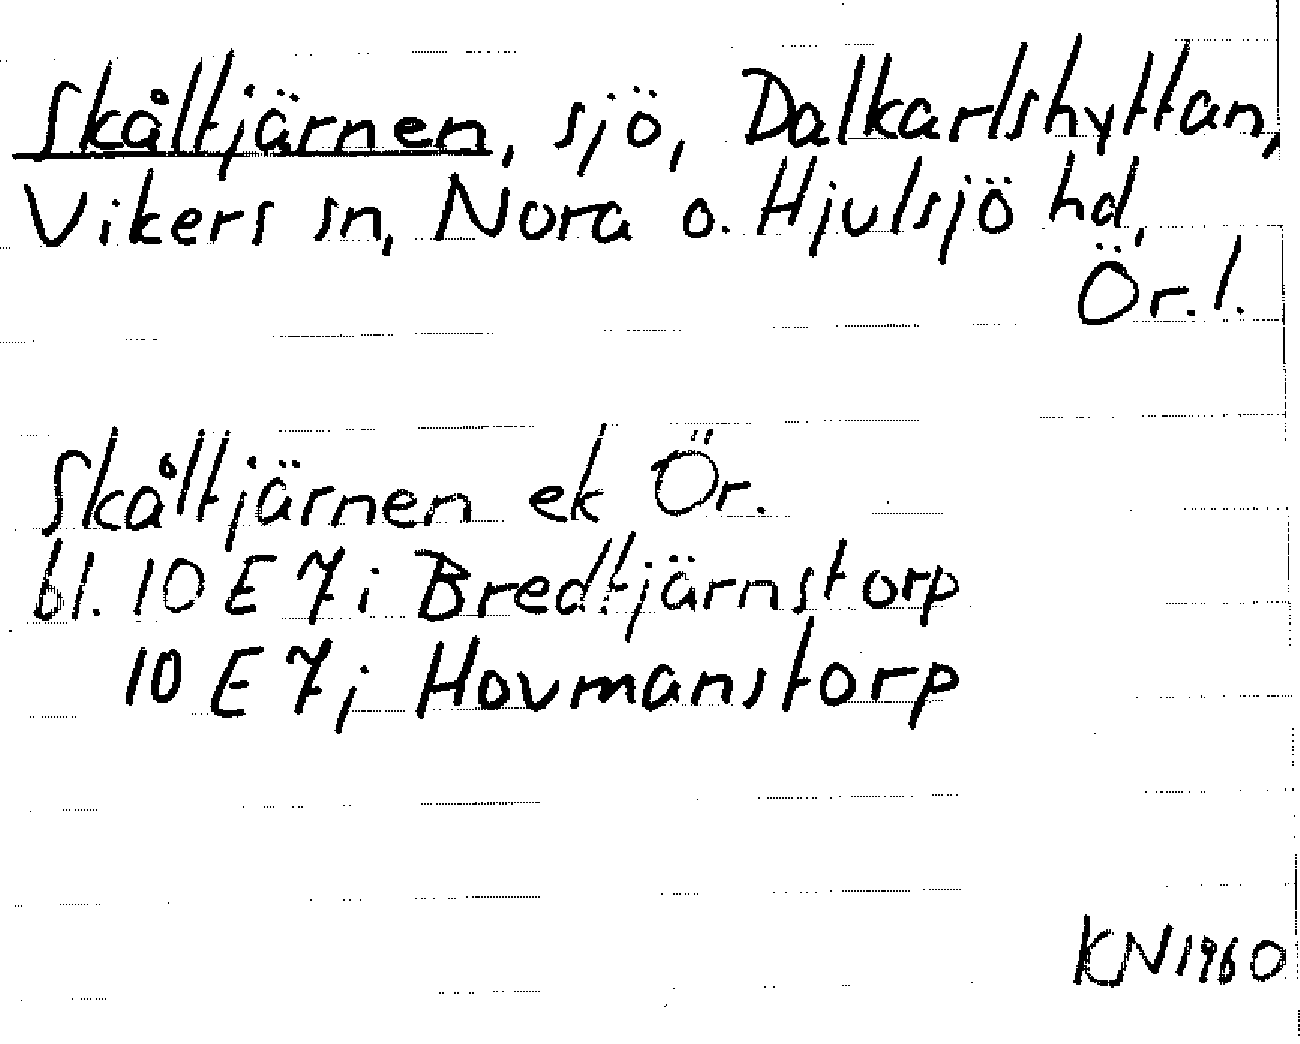 Skåltjärnen, sjö, Dalkarlshyttan,
Vikers sn, Nora o. Hjulsjö hd,
Ör. l.
Skåltjärnen ek Ör.
bl. 10 E 7i Bredtjärnstorp
10 E 7j Hovmanstorp
KN 1960